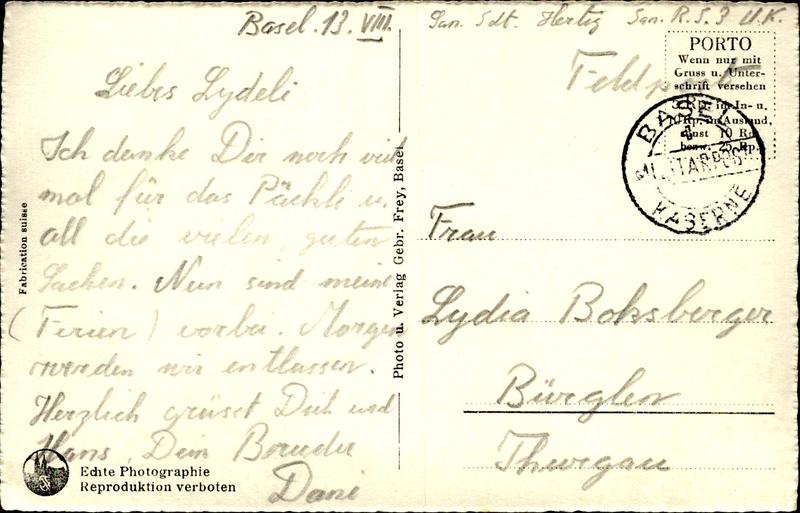 Basel. 13. VIII.
Liebes Lydeli
Ich danke Dir noch viel
mal für das Päckli u.
all die vielen guten
Sachen. Nun sind meine
(Ferien) vorbei. Morgen
werden wir entlassen.
Herzlich grüsst Dich und
Hans, Dein Bruder
Dani
Fabrication suisse
Echte Photographie
Reproduktion verboten
Photo u. Verlag Gebr. Frey, Basel
San. Sdt. Hertig San. R.S. 3 U.K.
Feldpost
PORTO
Wenn nur mit
Gruss u. Unter-
schrift versehen
5 Rp. im In- u.
10 Rp. im Ausland,
sonst 10 Rp.
bezw. 25 Rp.
BASEL
MILITÄRPOST
KASERNE
Frau
Lydia Boksberger
Bürglen
Thurgau